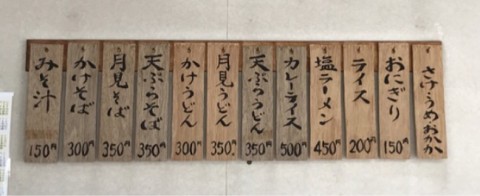 さけ・うめ・おかか
おにぎり 150円
ライス 200円
塩ラーメン 450円
カレーライス 500円
天ぷらうどん 350円
月見うどん 350円
かけうどん 300円
天ぷらそば 350円
月見そば 350円
かけそば 300円
みそ汁 150円